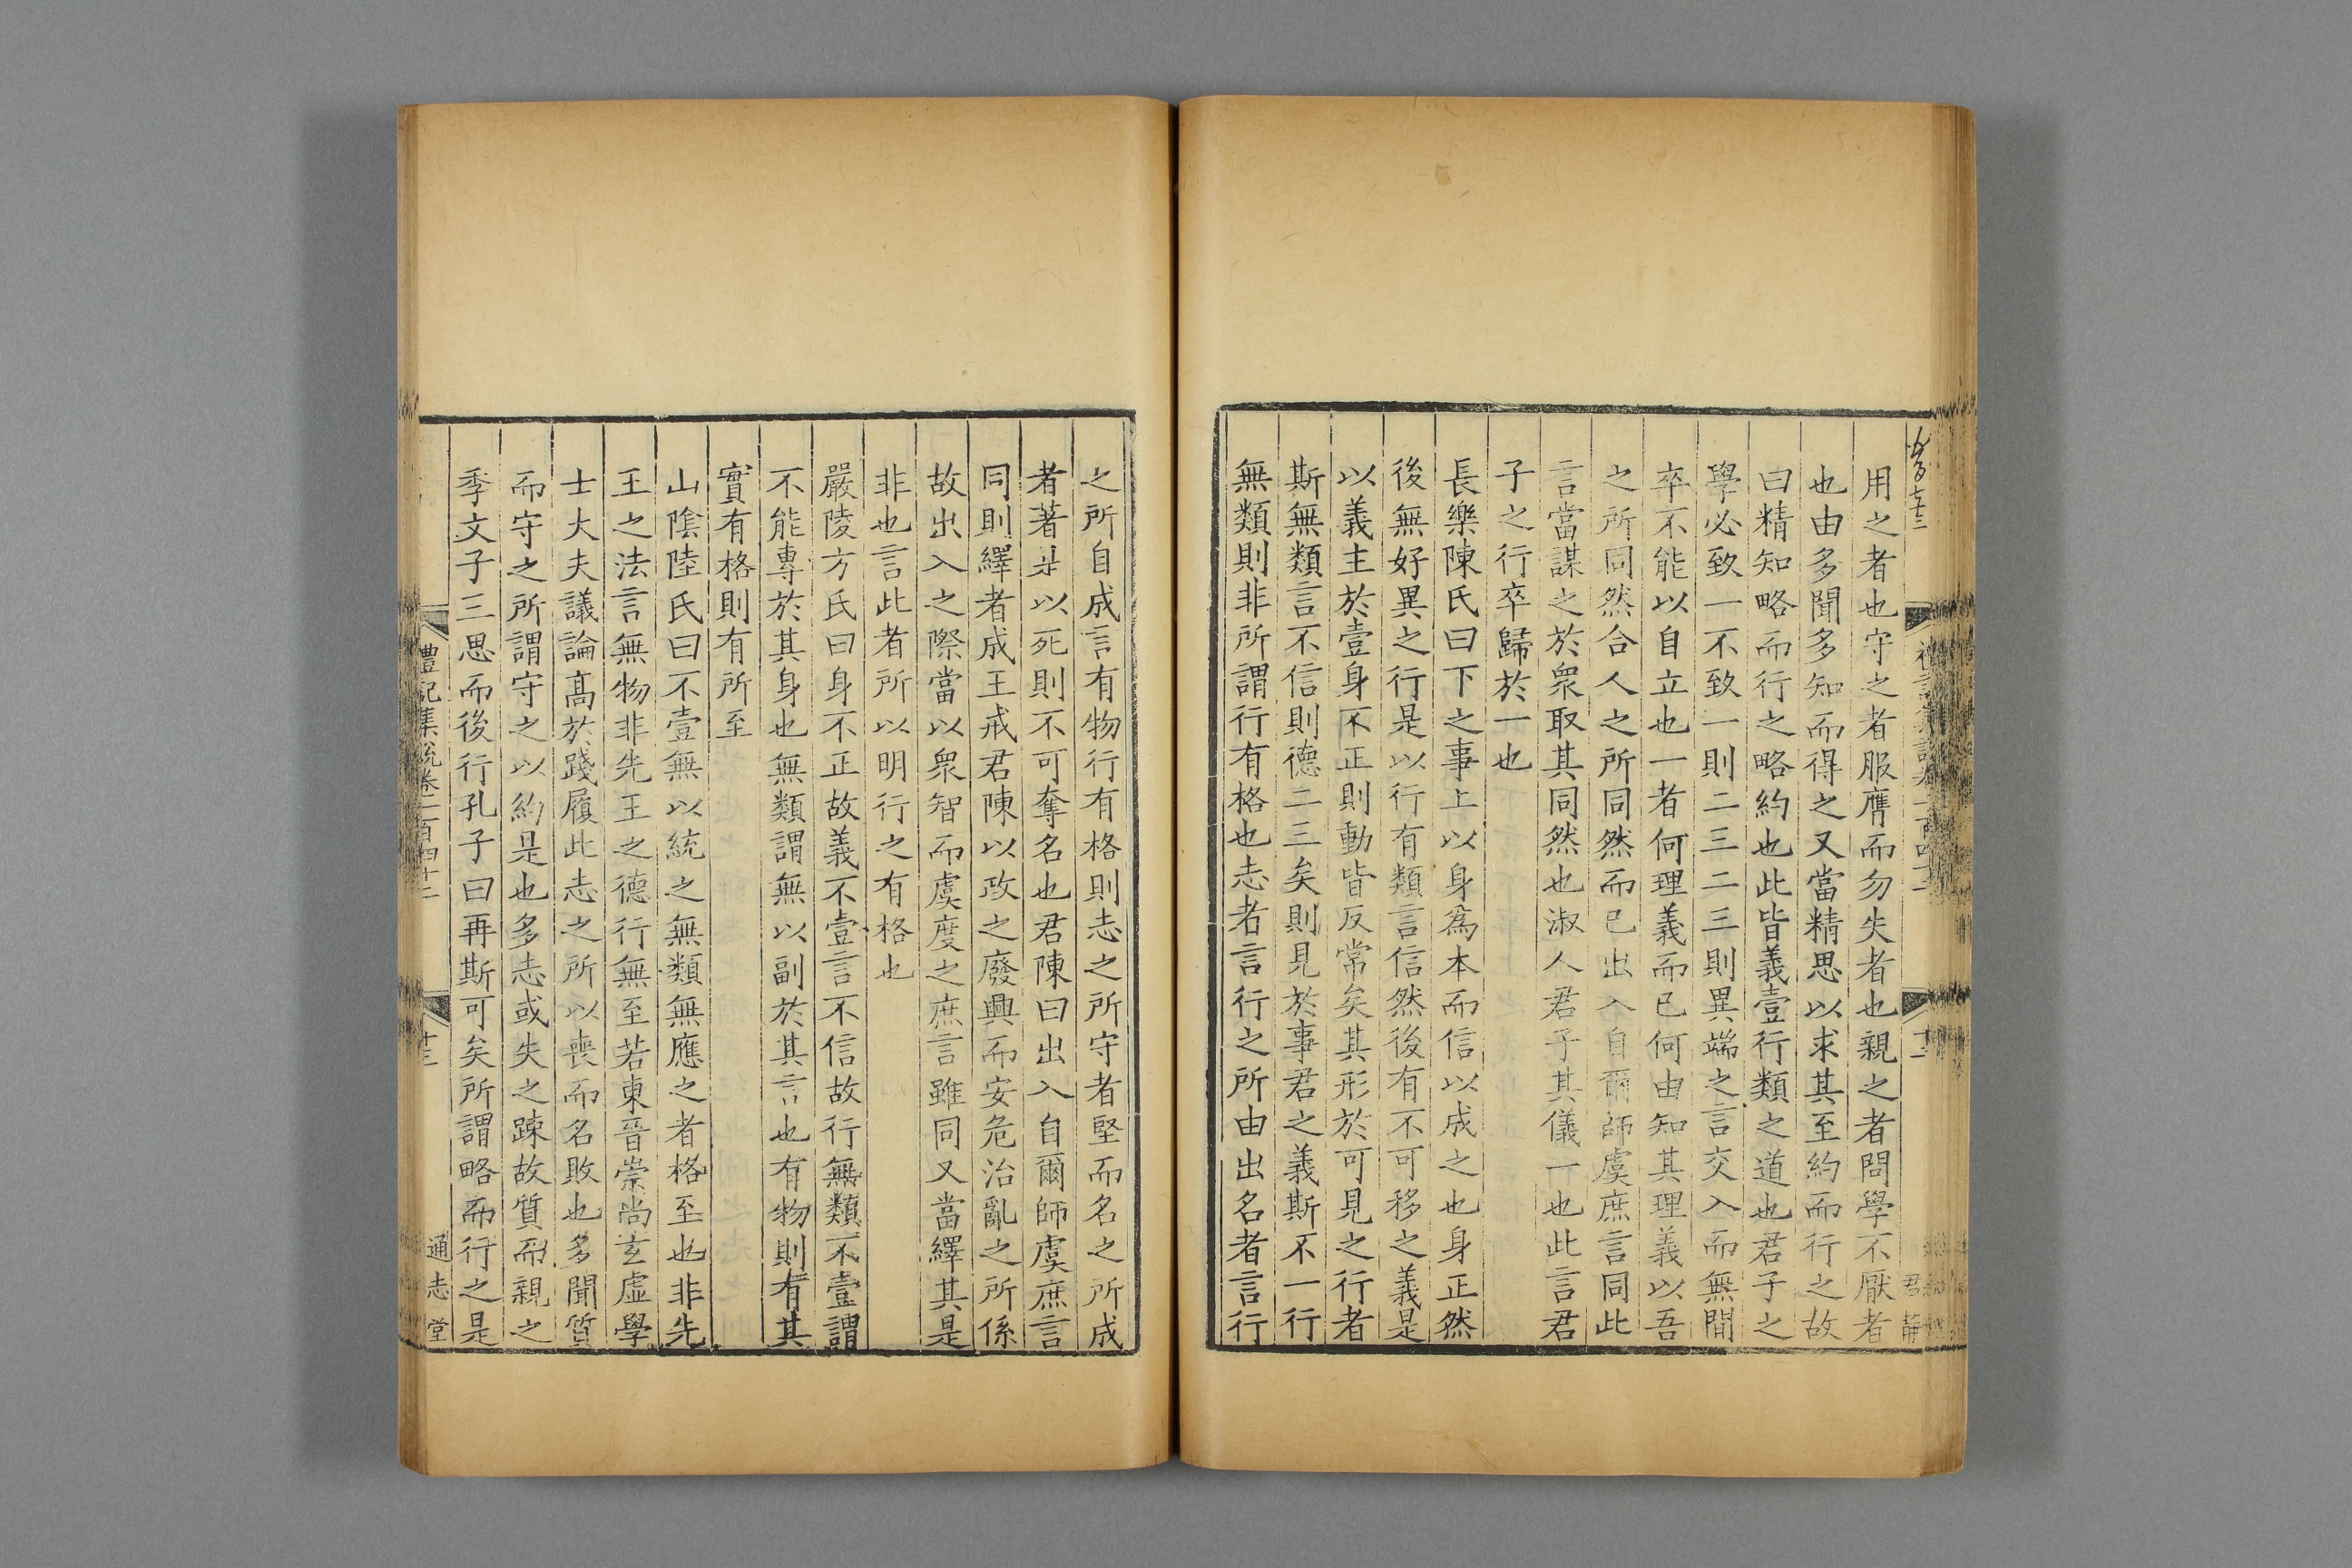 用之者也守之者服膺而勿失者也親之者問學不厭者
也由多聞多知而得之又當精思以求其至約而行之故
曰精知略而行之略約也此皆義壹行類之道也君子之
學必致一不致一則二三二三則異端之言交入而無間
卒不能以自立也一者何理義而已何由知其理義以吾
之所同然合人之所同然而已出入自爾師虞庶言同此
言當謀之於衆取其同然也淑人君子其儀一也此言君
子之行卒歸於一也
長樂陳氏曰下之事上以身爲本而信以成之也身正然
後無好異之行是以行有類言信然後有不可移之義是
以義主於壹身不正則動皆反常矣其形於可見之行者
斯無類言不信則德二三矣則見於事君之義斯不一行
無類則非所謂行有格也志者言行之所由出名者言行
之所自成言有物行有格則志之所守者堅而名之所成
者著是以死則不可奪名也君陳曰出入自爾師虞庶言
同則繹者成王戒君陳以政之廢興而安危治亂之所係
故出入之際當以衆智而虞度之庶言雖同又當繹其是
非也言此者所以明行之有格也
嚴陵方氏曰身不正故義不壹言不信故行無類不壹謂
不能專於其身也無類謂無以副於其言也有物則有其
實有格則有所至
山陰陸氏曰不壹無以統之無類無應之者格至也非先
王之法言無物非先王之德行無至若東晉崇尚玄虛學
士大夫議論高於踐履此志之所以喪而名敗也多聞質
而守之所謂守之以約是也多志或失之踈故質而親之
季文子三思而後行孔子曰再斯可矣所謂略而行之是
禮記集說卷一百四十二
十三
通志堂